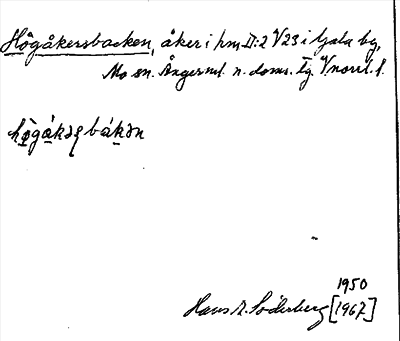 Högåkersbacken, åker i hm D:2 √23 i Gala by,
Mo sn. Ångerml. n. doms. tg. Vnorrl. l.
hö̀gákəʂbákən
1950
Hans A. Söderberg [1967]